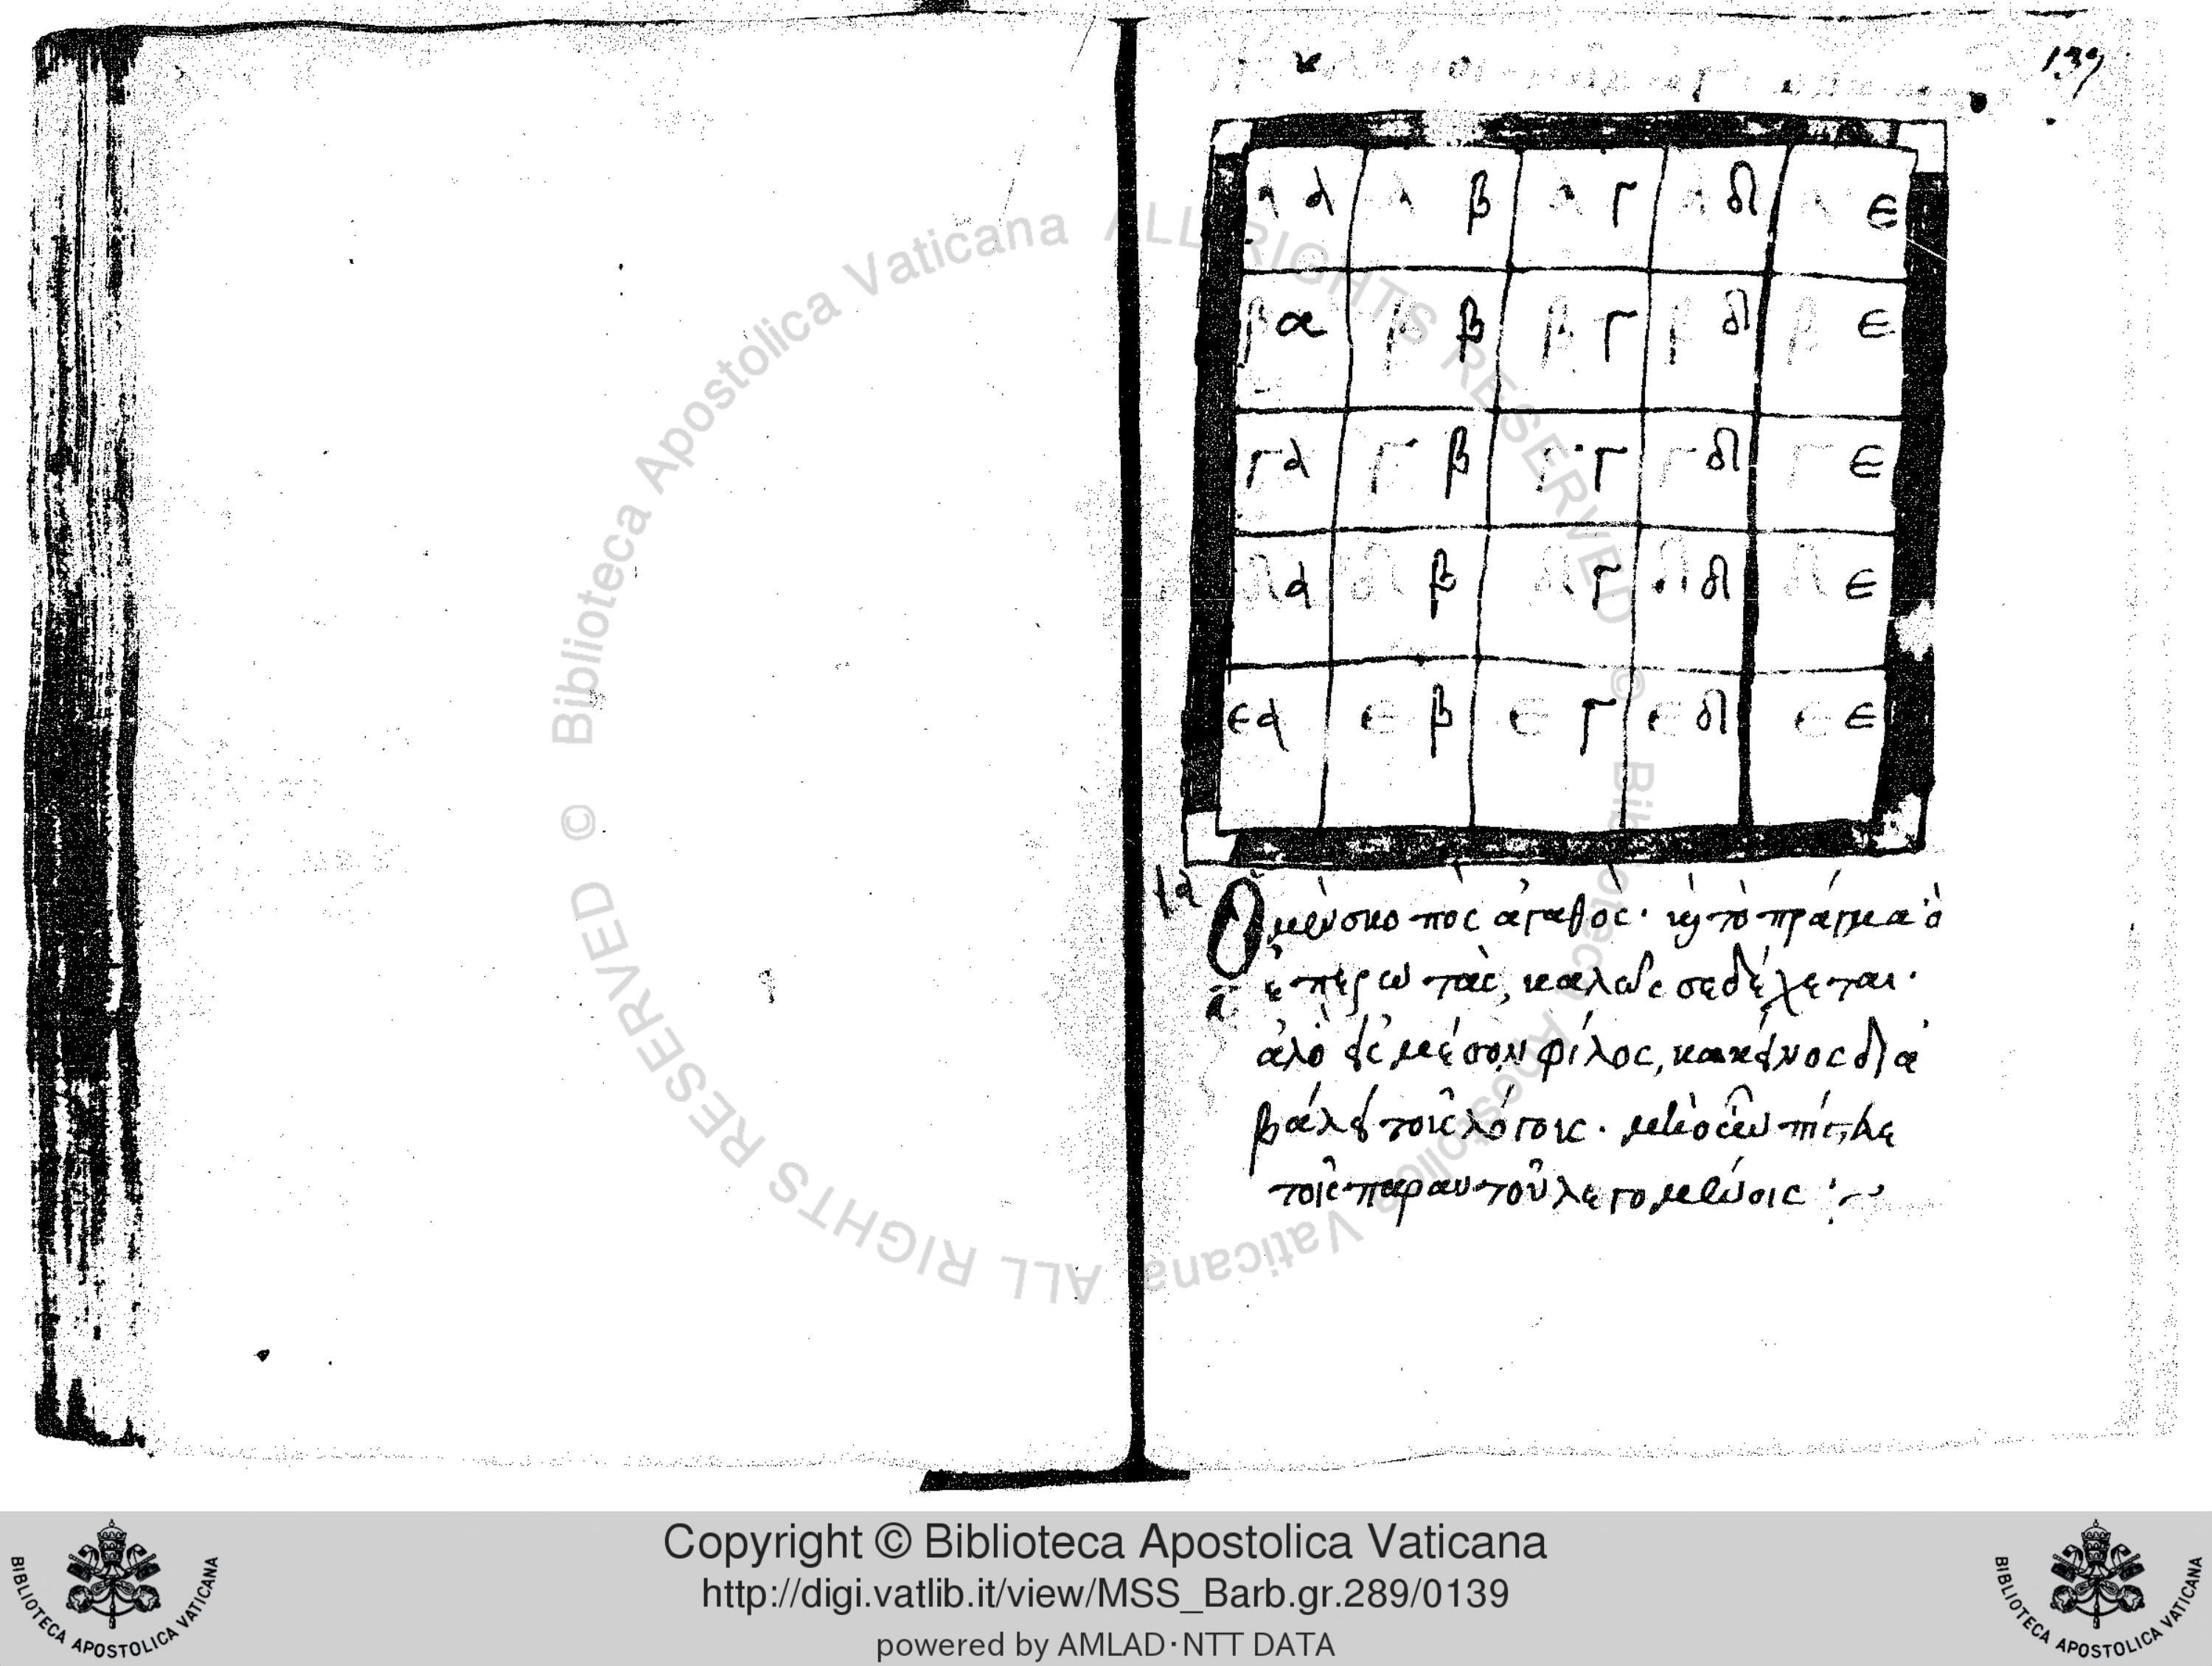 139
α α α β α γ α δ α ε
β α β β β γ β δ β ε
γ α γ β γ γ γ δ γ ε
δ α δ β δ γ δ δ δ ε
ε α ε β ε γ ε δ ε ε
Ὁ μὲν σκοπὸς ἀγαθὸς· καὶ τὸ πρᾶγμα ὁ
ἐπερωτᾶς, καλῶς σε δέχεται·
φίλος, κακεῖνος δια
βάλει τοῖς λόγοις· μὴ οὖν
τοῖς παραυτοῦ λεγομένοις
© Biblioteca Apostolica Vaticana ALL RIGHTS RESERVED © Biblioteca Apostolica Vaticana ALL RIGHTS RESERVED
Copyright © Biblioteca Apostolica Vaticana
http://digi.vatlib.it/view/MSS_Barb.gr.289/0139
powered by AMLAD·NTT DATA
BIBLIOTECA APOSTOLICA VATICANA
BIBLIOTECA APOSTOLICA VATICANA